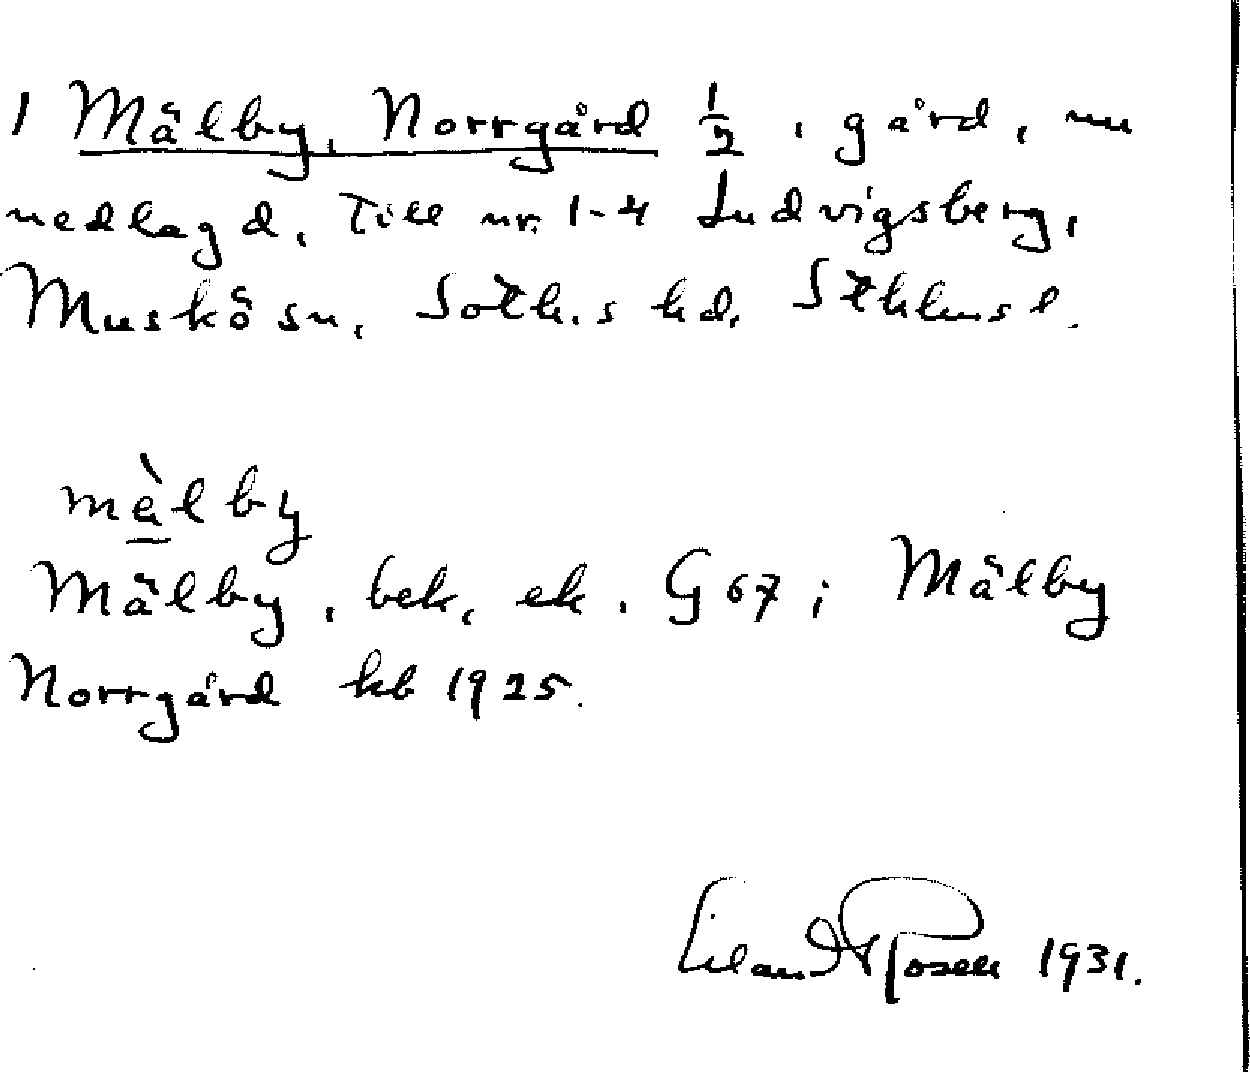 1 Mälby, Norrgård ½, gård, nu
nedlagd, Till nr. 1-4 Ludvigsberg,
Muskö sn, Soth.s hd, Sthlms l.
mä̀lby
Mälby, bek, ek. G 67; Mälby
Norrgård kb 1925.
Rosell 1931.